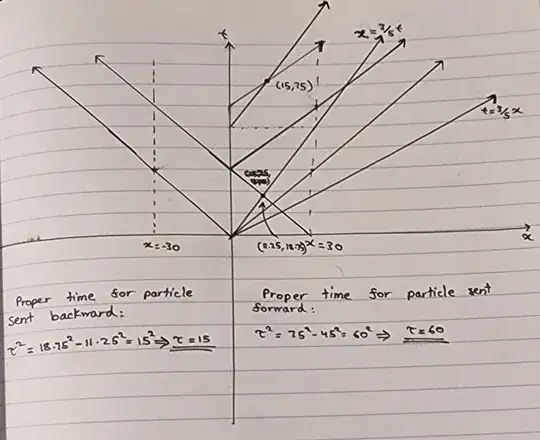 t
x = 3/5 t
(15,75)
t = 3/5 x
x = -30
(11.25, 18.75)
x = 30
x
Proper time for particle
sent backward:
τ² = 18.75² - 11.25² = 15² ⇒ τ = 15
Proper time for particle sent
forward:
τ² = 75² - 45² = 60² ⇒ τ = 60